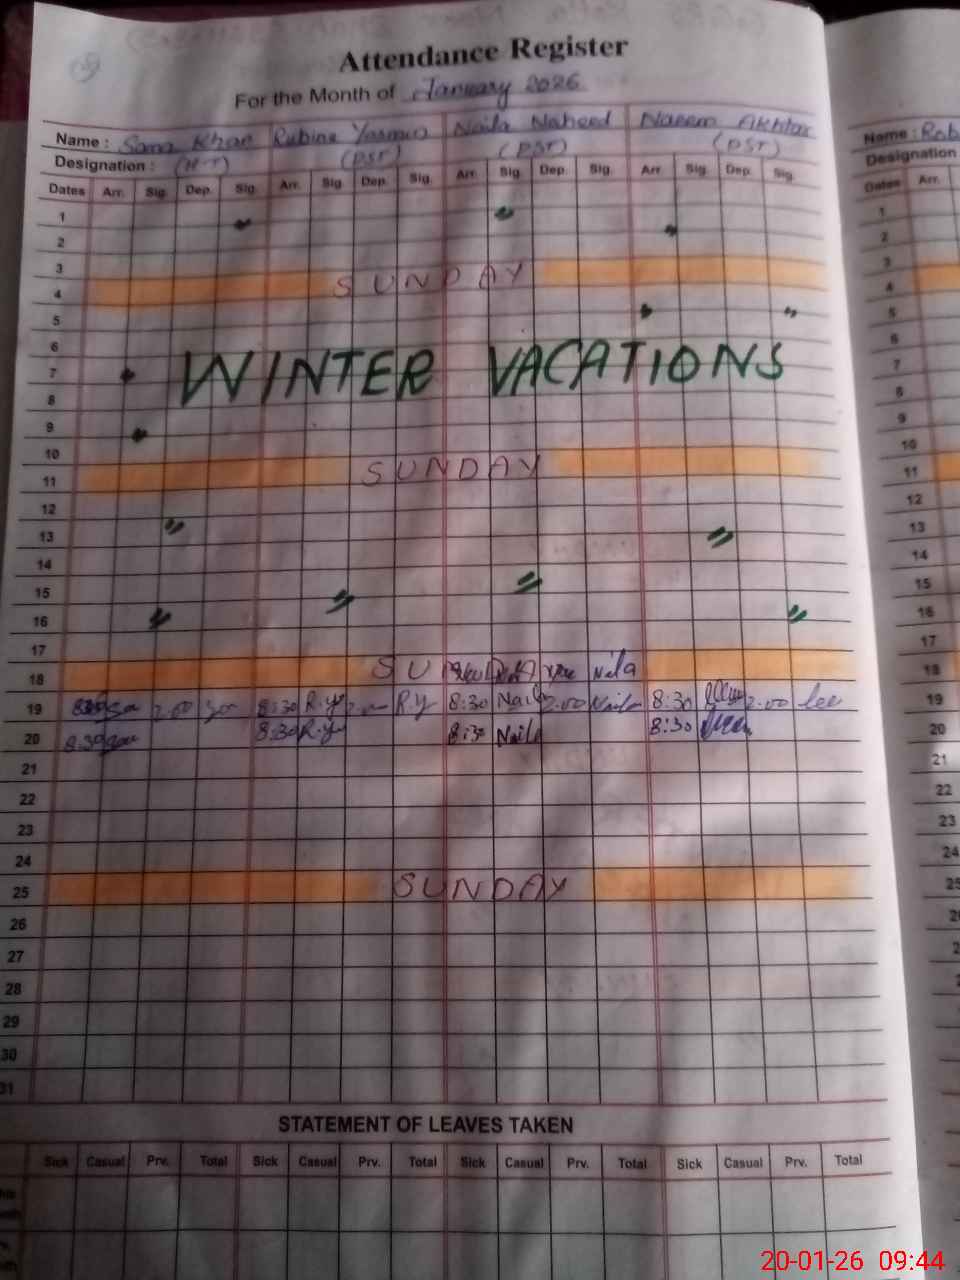 Attendance Register
For the Month of January 2026
Name : Sana Khan Rubina Yasmin Naila Naheed Naeem Akhtar
Designation : (H-T) (PST) (PST) (PST)
Dates Arr. Sig. Dep. Sig. Arr. Sig. Dep. Sig. Arr. Sig. Dep. Sig. Arr. Sig. Dep. Sig.
1
2
3
4 SUNDAY
5
6
7 WINTER VACATIONS
8
9
10
11 SUNDAY
12
13
14
15
16
17
18 SUNDAY Naila
19 2.00 8:30 R.Y R.Y 8:30 Naila 2.00 Naila 8:30 2.00
20 8:30 8:30 R.Y 8:30 Naila 8:30
21
22
23
24
25 SUNDAY
26
27
28
29
30
31
STATEMENT OF LEAVES TAKEN
Sick Casual Prv. Total Sick Casual Prv. Total Sick Casual Prv. Total Sick Casual Prv. Total
Name :
Designation
Dates Arr.
1
2
3
4
5
6
7
8
9
10
11
12
13
14
15
16
17
18
19
20
21
22
23
24
25
20-01-26 09:44